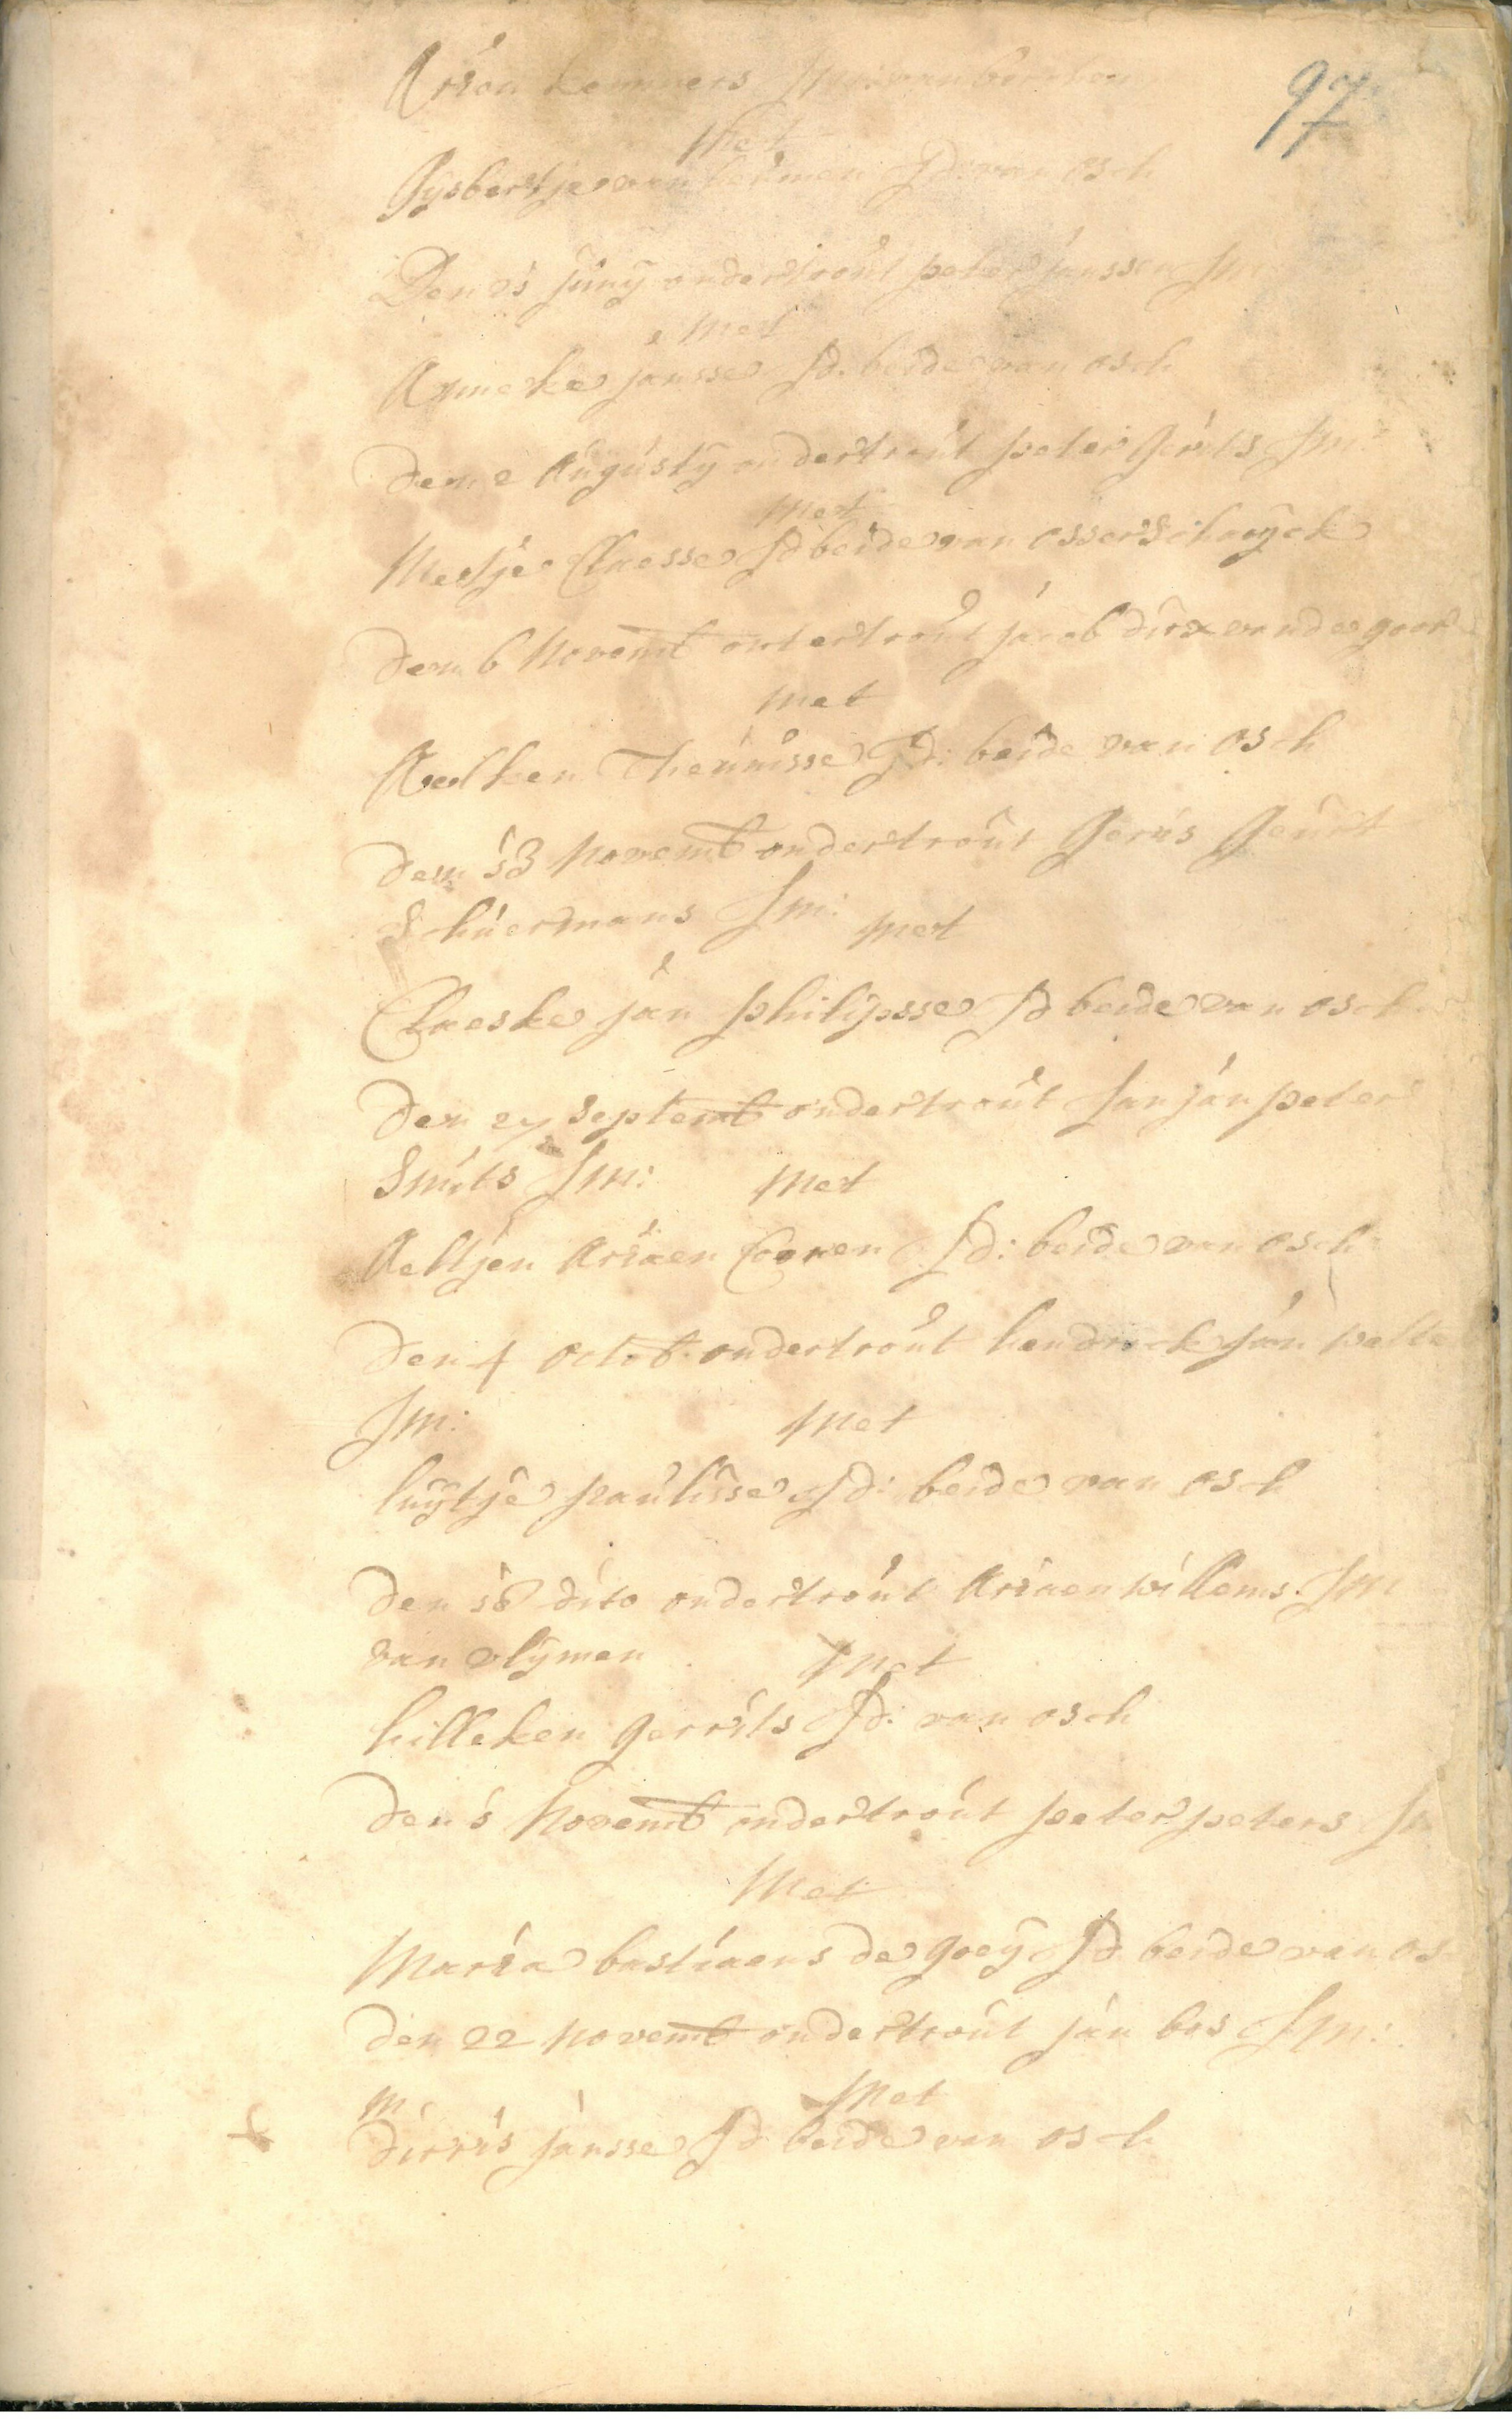 97
Arien kemmers Jm: van
Met
Gysbertje van hermen Jd: van osch
Den 21 Junÿ ondertrout peter janssen Jm
Met
Anneke jansse Jd. beide van osch
Den 2 Augustÿ ondertrout peter Gerits Jm:
Met
Metje Claesse Jd beide van osserschaÿck
Den 6 Novemb ontertrout jacob dirx vande goor
Met
Aelken Theunisse Jd: beide van osch
Den 13 Novemb ondertrout Geris Geurt
Schuermans Jm: Met
Claeske jan philipsse Jd beide van osch
Den 27 septemb ondertrout Jan jan peter
Smits Jm: Met
Aeltjen Ariaen Coenen Jd: beide van osch
Den 4 octob: ondertrout hendrick jan
Jm: Met
luÿtje paulisse Jd: beide van osch
Den 18 dito ondertrout Ariaen willems Jm
van vlÿmen Met
hilleken gerrits Jd: van osch
Den 1 Novemb ondertrout peter peters J
Met
Maria bastiaens de goeÿ Jd. beide van os
Den 22 Novemb ondertrout jan bos Jm:
M Met
dirris jansse Jd beide van osch